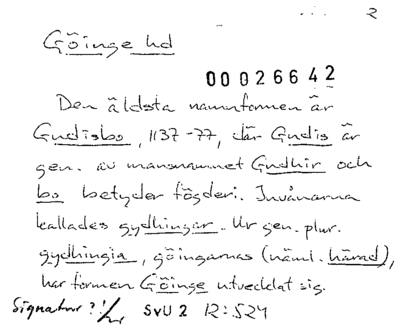 2
Göinge hd
00026642
Den äldsta namnformen är
Gudisbo, 1137-77, där Gudis är
gen. av mansnamnet Gudhir och
bo betyder fögderi. Invånarna
kallades gydhingar. Ur gen. plur.
gydhingia, göingarnas (näml. härad),
har formen Göinge utvecklat sig.
Signatur?! SvU 2 12:524